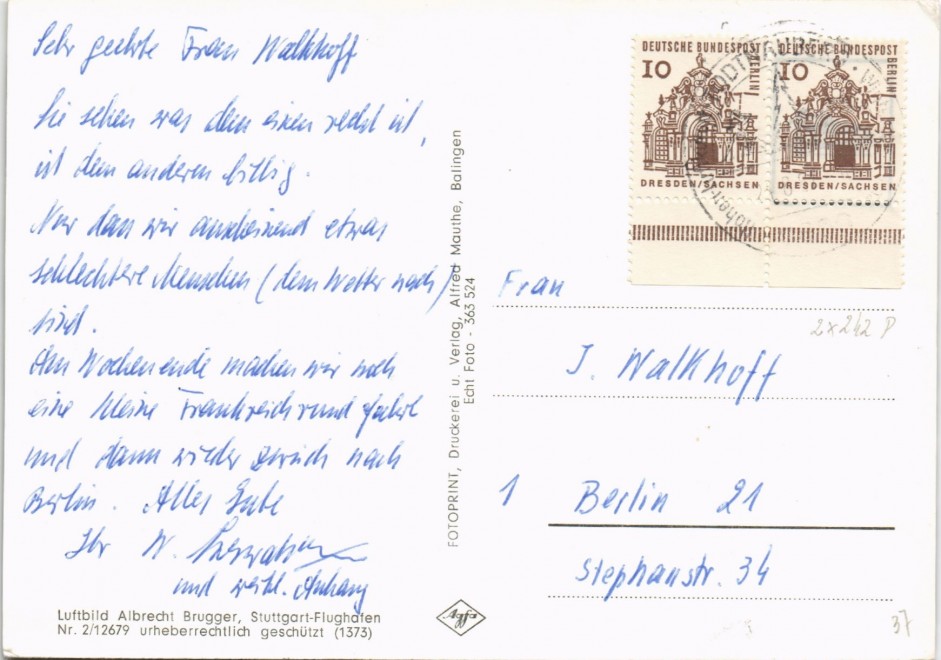 Sehr geehrte Frau Walkhoff
Sie sehen was dem einen recht ist,
ist dem anderen billig.
Nur dass wir anscheinend etwas
schlechtere Menschen (dem Wetter nach)
sind.
Am Wochenende machen wir noch
eine kleine Frankreichrundfahrt
und dann wieder zurück nach
Berlin. Alles Gute
Ihr W.
und weibl. Anhang
Luftbild Albrecht Brugger, Stuttgart-Flughafen
Nr. 2/12679 urheberrechtlich geschützt (1373)
FOTOPRINT, Druckerei u. Verlag, Alfred Mauthe, Balingen
Echt Foto - 363 524
Agfa
DEUTSCHE BUNDESPOST
BERLIN
10
DRESDEN/SACHSEN
DEUTSCHE BUNDESPOST
BERLIN
10
DRESDEN/SACHSEN
2x242 P
Frau
J. Walkhoff
1 Berlin 21
Stephanstr. 34
37